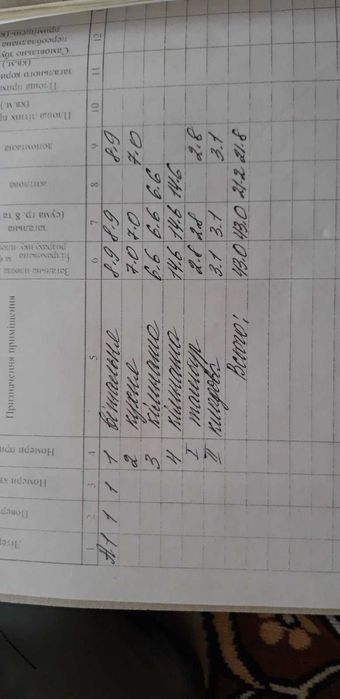 Літер
Повер
Номери кв
Номери при
Призначення приміщення
Загальна площа
загальна
(сума гр. 8 та
житлова
допоміжна
Площа літніх пр
(кв.м.)
Площа прим
загального кори
(кв.м.)
Самовільно збу
переобладнана
1 2 3 4 5 6 7 8 9 10 11 12
А1 1 1 1 вітальня 8.9 8.9 8.9
2 кухня 7.0 7.0 7.0
3 кімната 6.6 6.6 6.6
4 кімната 14.6 14.6 14.6
I тамбур 2.8 2.8 2.8
II кладова 3.1 3.1 3.1
Всього: 43.0 43.0 21.2 21.8